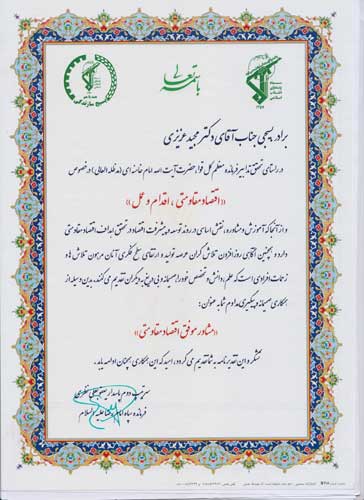 باسمه تعالی
برادر بسیجی جناب آقای دکتر مجید عزیزی
در راستای تحقق تدابیر فرمانده معظم کل قوا، حضرت آیت الله امام خامنه ای (مدظله العالی) در خصوص
«اقتصاد مقاومتی، اقدام و عمل»
و از آنجا که آموزش و مشاوره، نقش اساسی در روند توسعه و پیشرفت اقتصاد و تحقق اهداف اقتصاد مقاومتی
دارد و همچنین روزافزون تلاش گران عرصه تولید و ارتقای سطح فکری آنان مرهون تلاش ها و
زحمات افرادی است که علم و دانش و تخصص خود را صمیمانه و بی دریغ به دیگران تقدیم می کنند، بدین وسیله از
همکاری صمیمانه و پیگیری مداوم شما به عنوان:
«مشاور موفق اقتصاد مقاومتی»
تشکر و این تقدیرنامه به شما تقدیم می گردد، امید که این همکاری همچنان ادامه یابد.
سرتیپ دوم پاسدار نظری
فرمانده سپاه امام رضا علیه السلام